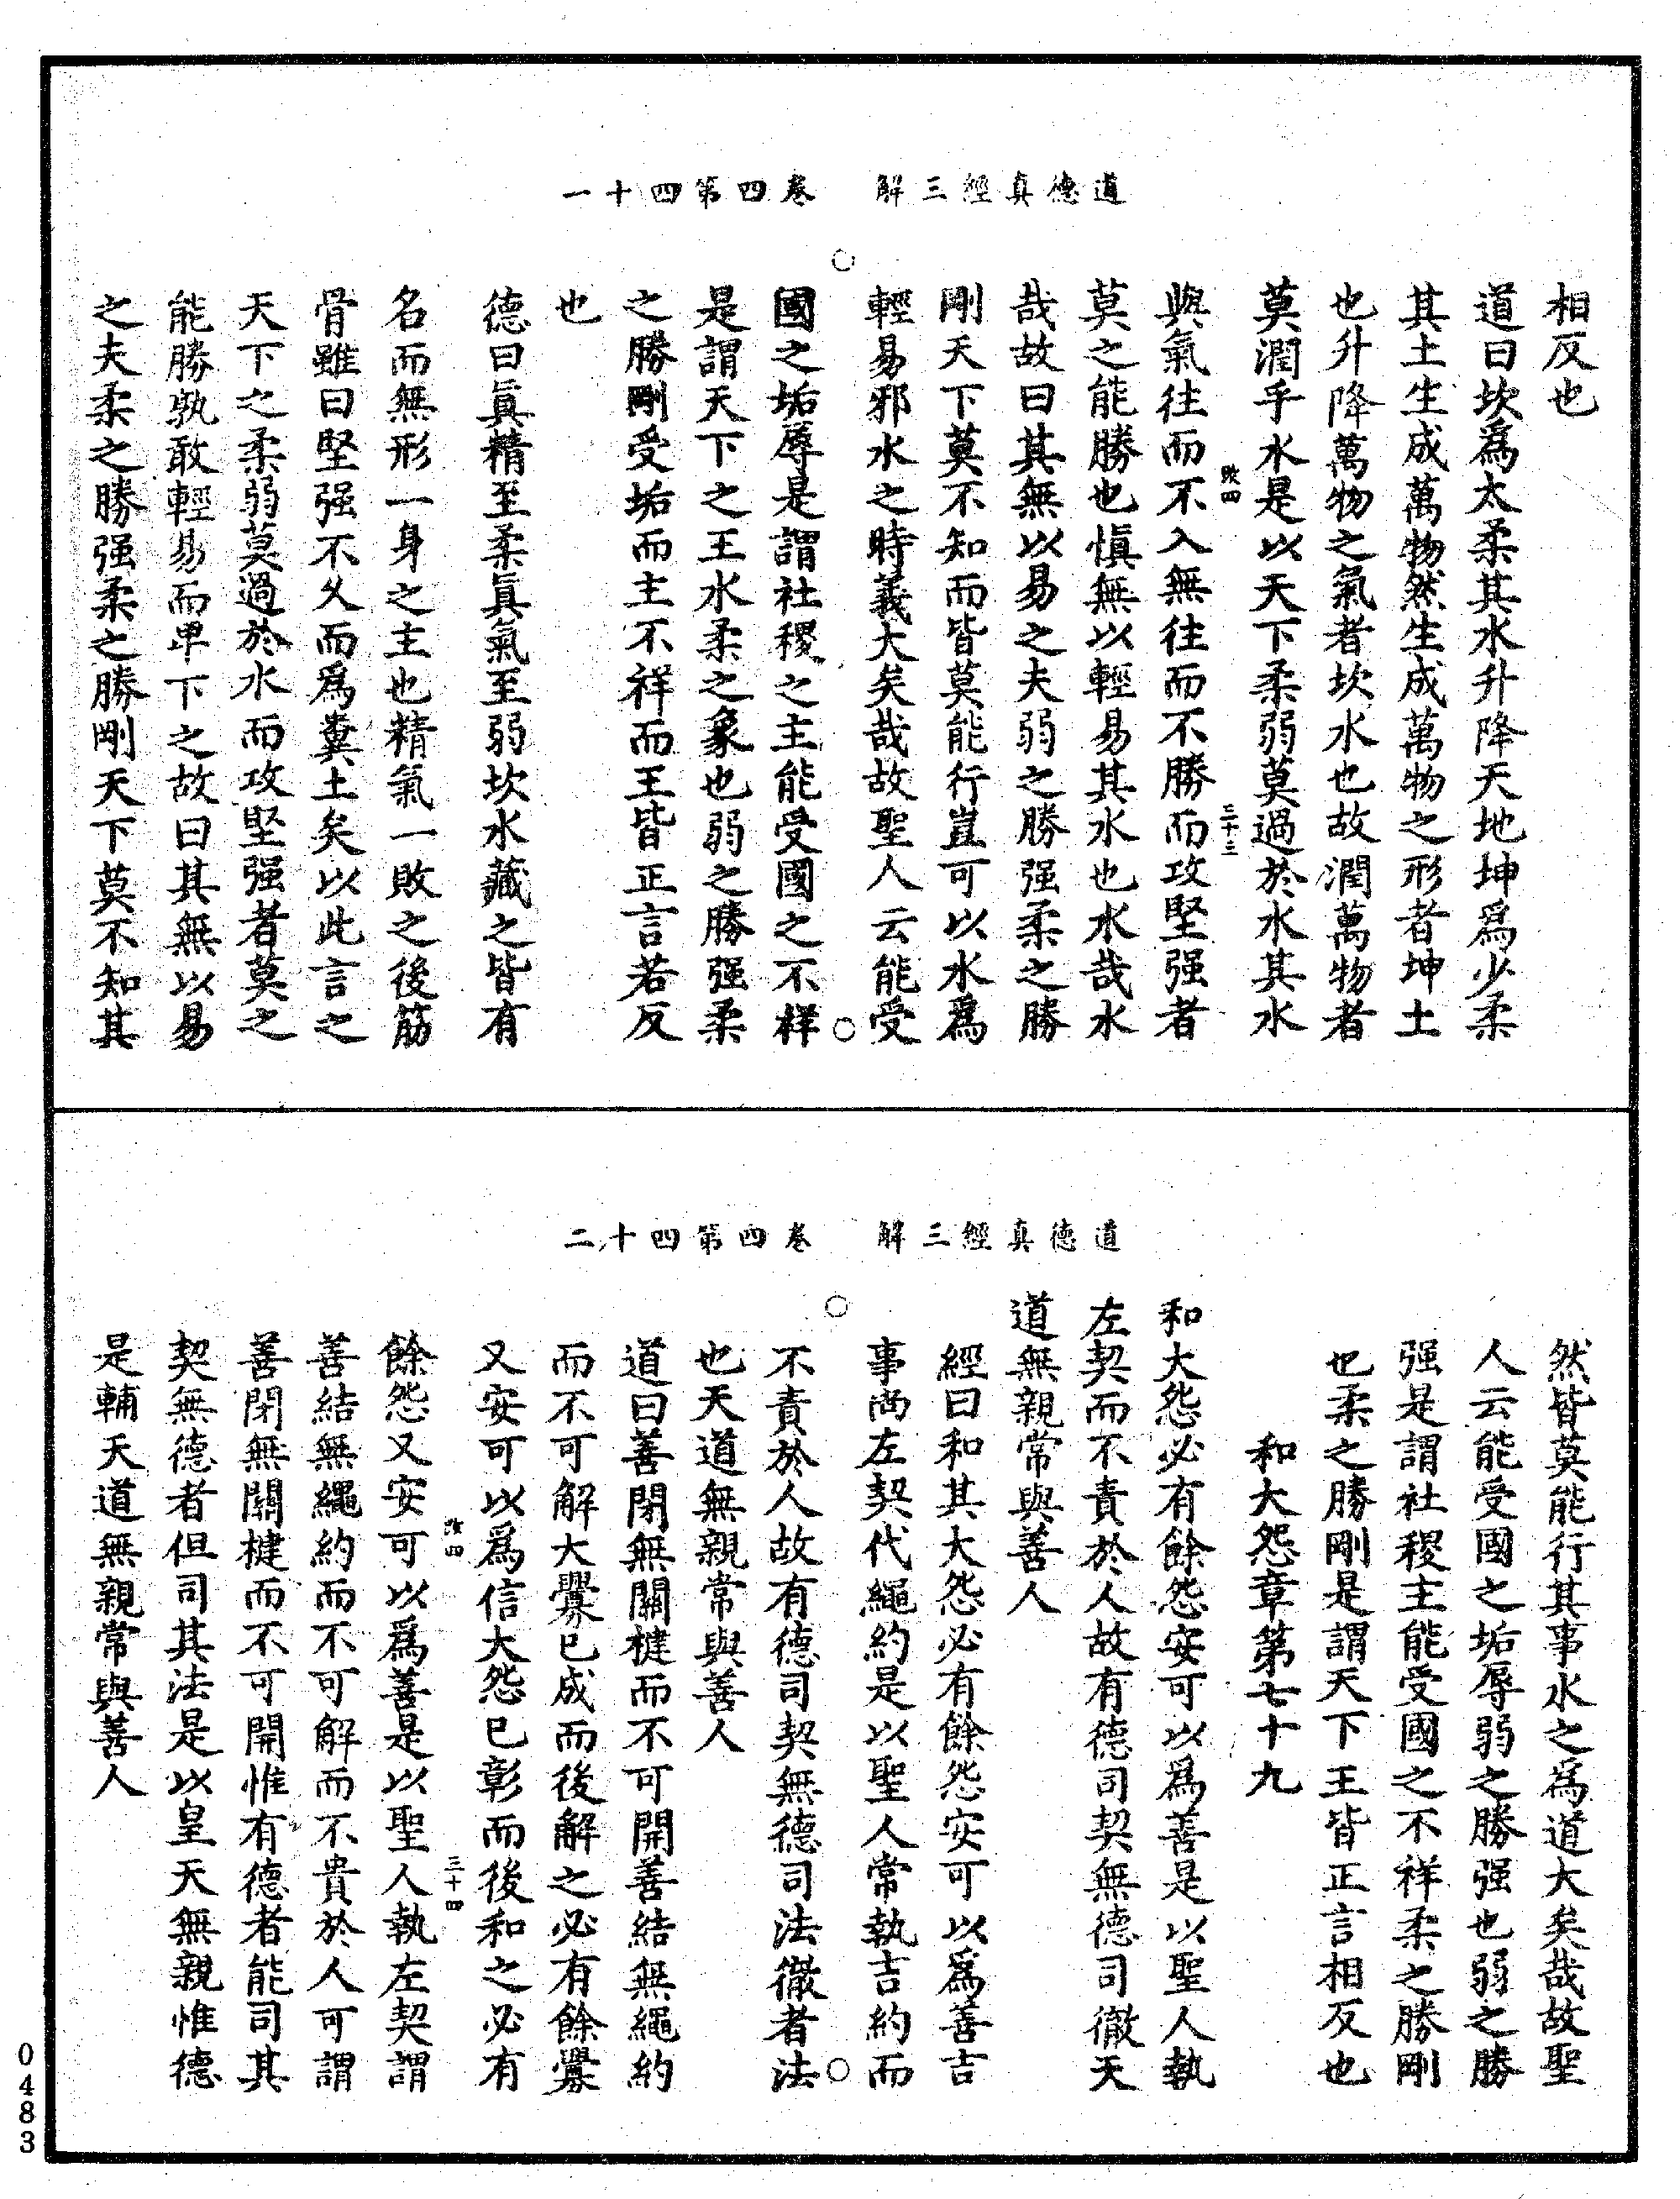 道德真經三解　卷四第四十一
相反也
道曰坎爲太柔其水升降天地坤爲少柔
其土生成萬物然生成萬物之形者坤土
也升降萬物之氣者坎水也故潤萬物者
莫潤乎水是以天下柔弱莫過於水其水
改四　三十三
與氣往而不入無往而不勝而攻堅强者
莫之能勝也愼無以輕易其水也水哉水
哉故曰其無以易之夫弱之勝强柔之勝
剛天下莫不知而皆莫能行豈可以水爲
輕易邪水之時義大矣哉故聖人云能受
國之垢辱是謂社稷之主能受國之不祥
是謂天下之王水柔之象也弱之勝强柔
之勝剛受垢而主不祥而王皆正言若反
也
德曰眞精至柔眞氣至弱坎水藏之皆有
名而無形一身之主也精氣一敗之後筋
骨雖曰堅强不久而爲糞土矣以此言之
天下之柔弱莫過於水而攻堅强者莫之
能勝孰敢輕易而卑下之故曰其無以易
之夫柔之勝强柔之勝剛天下莫不知其
道德真經三解　卷四第四十二
然皆莫能行其事水之爲道大矣哉故聖
人云能受國之垢辱弱之勝强也弱之勝
强是謂社稷主能受國之不祥柔之勝剛
也柔之勝剛是謂天下王皆正言相反也
和大怨章第七十九
和大怨必有餘怨安可以爲善是以聖人執
左契而不責於人故有德司契無德司徹天
道無親常與善人
經曰和其大怨必有餘怨安可以爲善吉
事尚左契代繩約是以聖人常執吉約而
不責於人故有德司契無德司法徹者法
也天道無親常與善人
道曰善閉無關楗而不可開善結無繩約
而不可解大釁已成而後解之必有餘釁
又安可以爲信大怨已彰而後和之必有
改四　三十四
餘怨又安可以爲善是以聖人執左契謂
善結無繩約而不可解而不責於人可謂
善閉無關楗而不可開惟有德者能司其
契無德者但司其法是以皇天無親惟德
是輔天道無親常與善人
0483